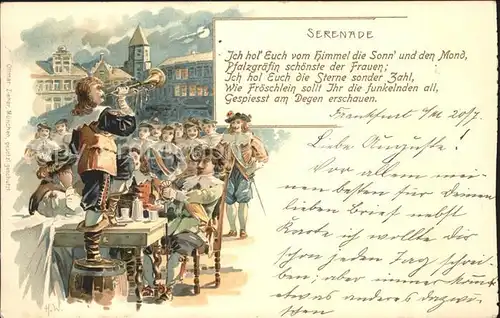 SERENADE
Ich hol' Euch vom Himmel die Sonn' und den Mond,
Pfalzgräfin schönste der Frauen;
Ich hol Euch die Sterne sonder Zahl,
Wie Fröschlein sollt Ihr die funkelnden all,
Gespiesst am Degen erschauen.
Frankfurt a/M 20/7.
Liebe Auguste!
Vor allem mei-
nen besten für Deinen
lieben Brief nebst
Karte ich wollte dir
schon jeden Tag schrei-
ben; aber immer kommt
etwas anderes dazwi-
schen
Ottmar Zieher, München, gesetzl. geschützt.
H.W.